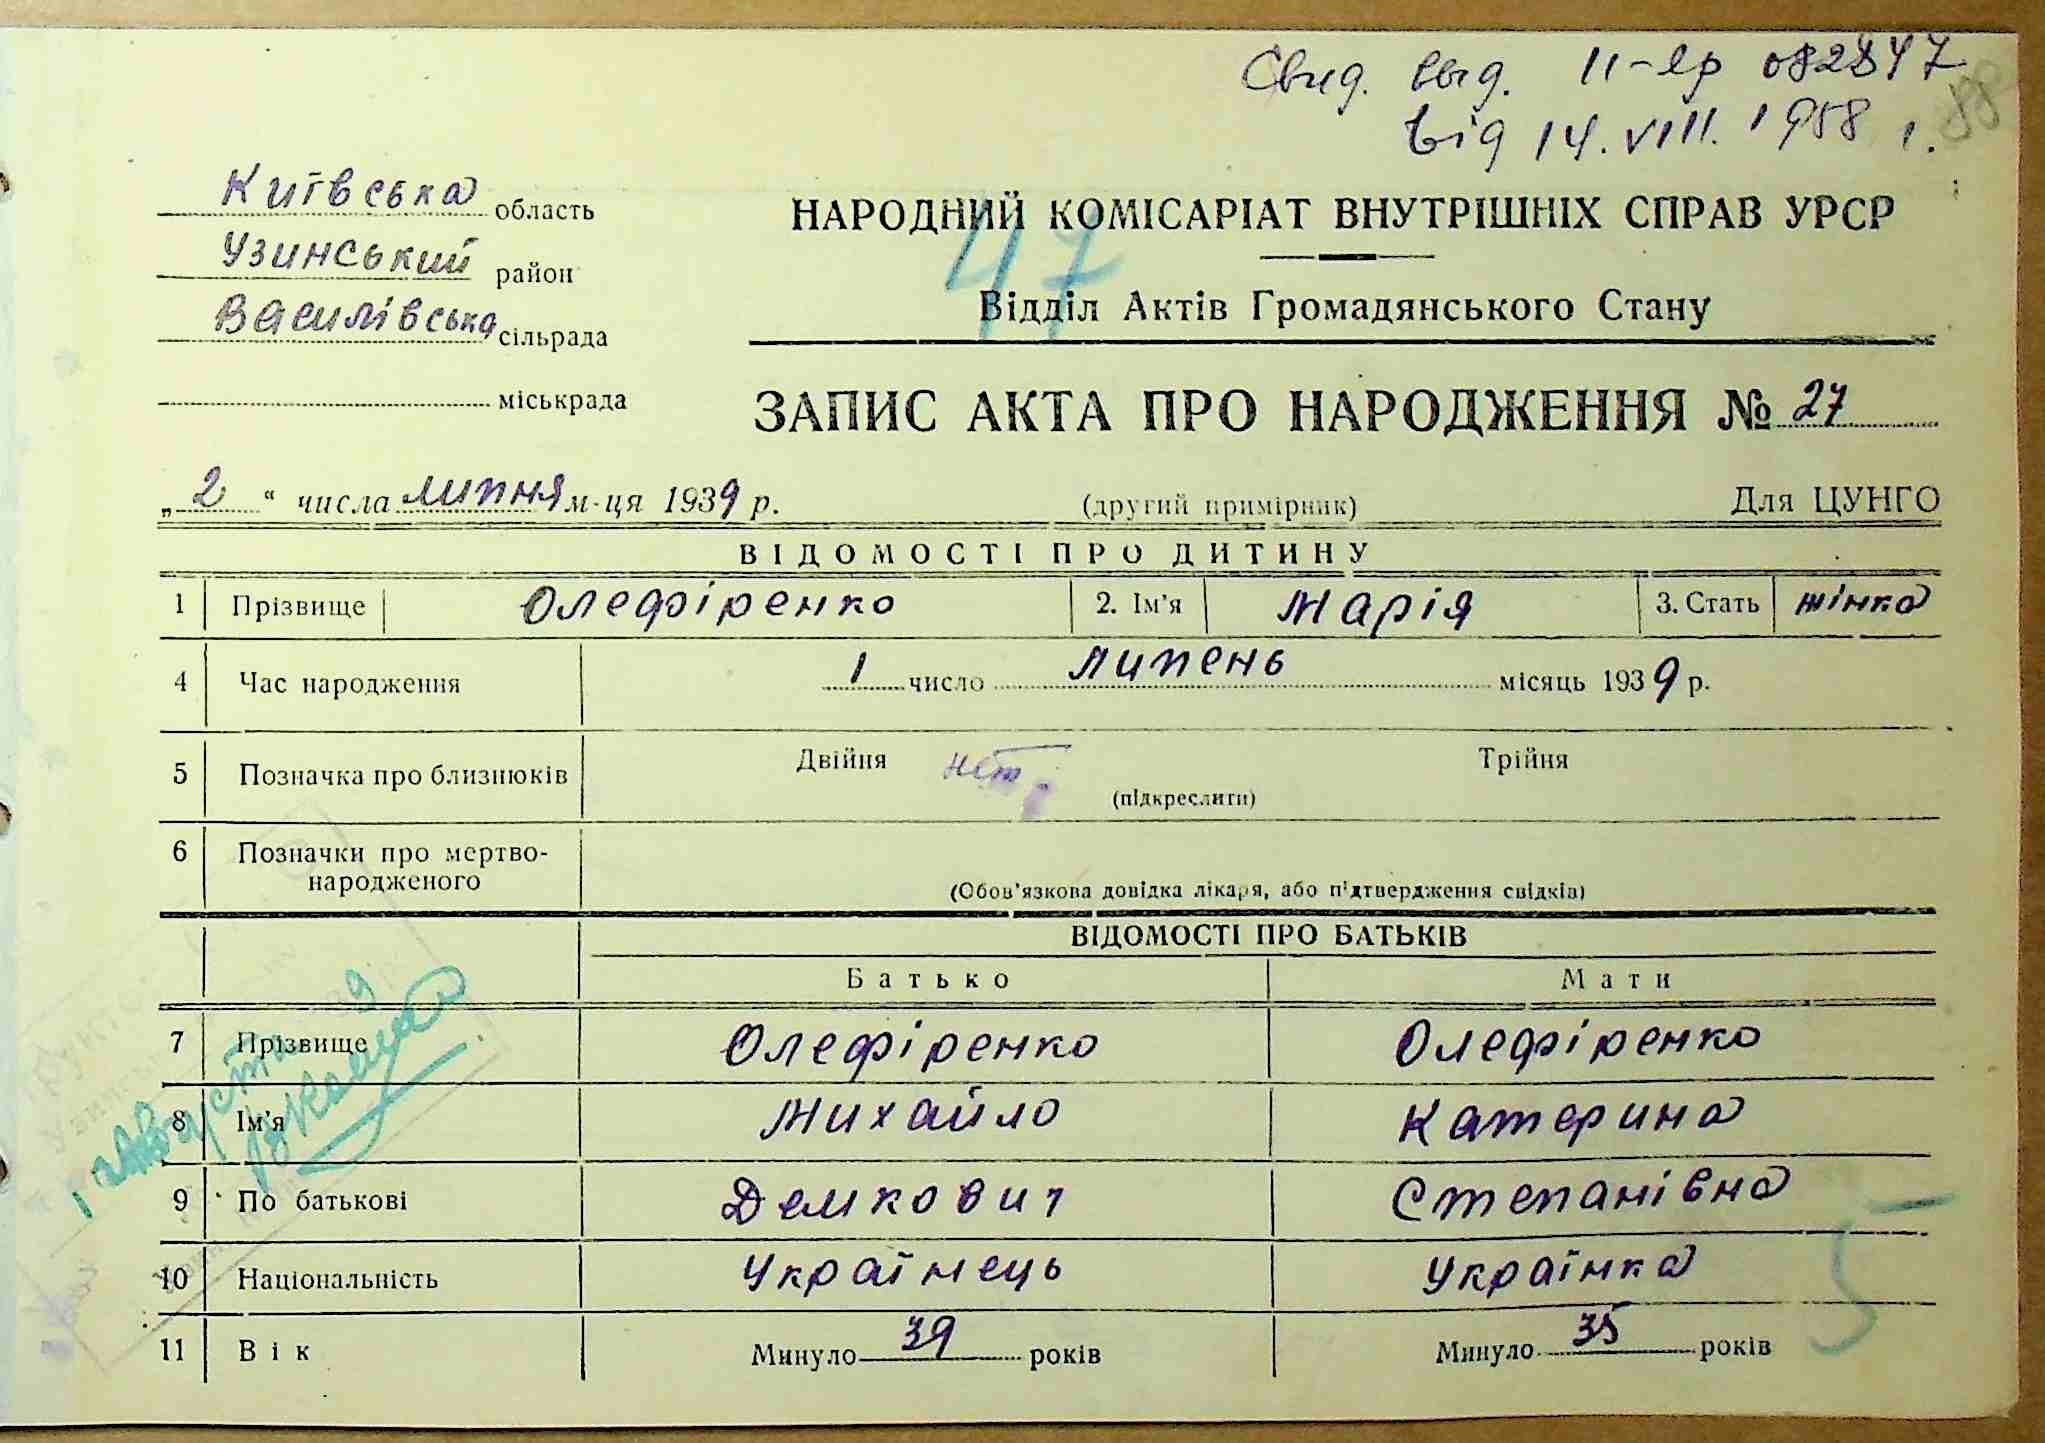 Свид. выд. II-яр 082847
від 14.VIII.1958 г.
88
Київська область
Узинський район
Василівська сільрада
міськрада
НАРОДНИЙ КОМІСАРІАТ ВНУТРІШНІХ СПРАВ УРСР
47
Відділ Актів Громадянського Стану
ЗАПИС АКТА ПРО НАРОДЖЕННЯ № 27
„2“ числа липня м-ця 1939 р. (другий примірник) Для ЦУНГО
ВІДОМОСТІ ПРО ДИТИНУ
1 Прізвище Олефіренко 2. Ім'я Марія 3. Стать жінка
4 Час народження 1 число липень місяць 1939 р.
5 Позначка про близнюків Двійня нет Трійня
(підкреслити)
6 Позначки про мертво-
народженого
(Обов'язкова довідка лікаря, або підтвердження свідків)
ВІДОМОСТІ ПРО БАТЬКІВ
Батько Мати
7 Прізвище Олефіренко Олефіренко
8 Ім'я Михайло Катерина
9 По батькові Демкович Степанівна
10 Національність Українець Українка
5
11 Вік Минуло 39 років Минуло 35 років